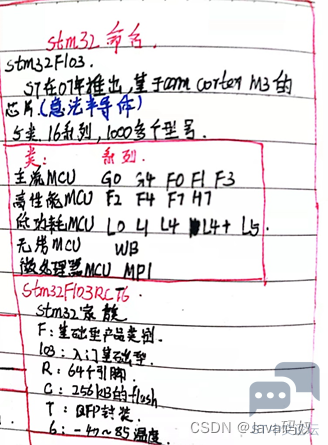 stm32命名.
stm32F103.
ST在07年推出,基于arm corter M3的
芯片.(意法半导体)
5类.16系列,1000多个型号.
类: 系列.
主流MCU G0 G4 F0 F1 F3
高性能MCU F2 F4 F7 H7
低功耗MCU L0 L1 L4 L4+ L5.
无线MCU WB
微处理器MCU MP1
Stm32F103RCT6.
Stm32家族
F:基础型产品类别.
103:入门基础型.
R:64个引脚.
C:256kB的flush
T:QFP封装.
6:-40~85温度.
CSDN @Java-码奴